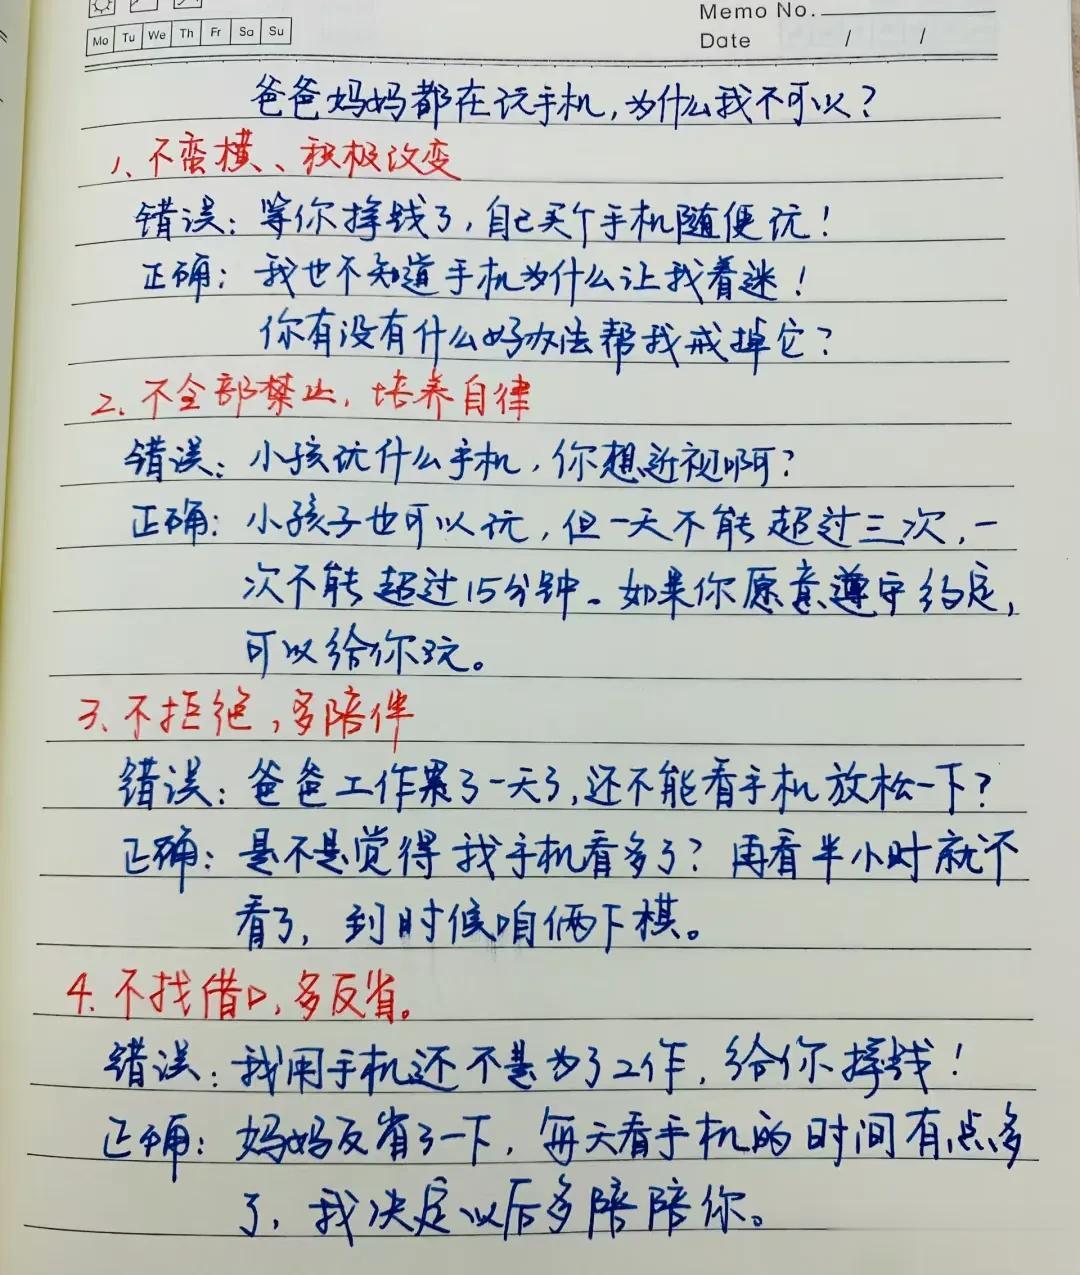 Memo No.
Mo Tu We Th Fr Sa Su
Date / /
爸爸妈妈都在玩手机,为什么我不可以?
1、不蛮横、积极改变
错误:等你挣钱了,自己买个手机随便玩!
正确:我也不知道手机为什么让我着迷!
你有没有什么好办法帮我戒掉它?
2、不全部禁止,培养自律
错误:小孩玩什么手机,你想近视啊?
正确:小孩子也可以玩,但一天不能超过三次,一
次不能超过15分钟。如果你愿意遵守约定,
可以给你玩。
3、不拒绝,多陪伴
错误:爸爸工作累了一天了,还不能看手机放松一下?
正确:是不是觉得我手机看多了?再看半小时就不
看了,到时候咱俩下棋。
4.不找借口,多反省。
错误:我用手机还不是为了工作,给你挣钱!
正确:妈妈反省了一下,每天看手机的时间有点多
了,我决定以后多陪陪你。